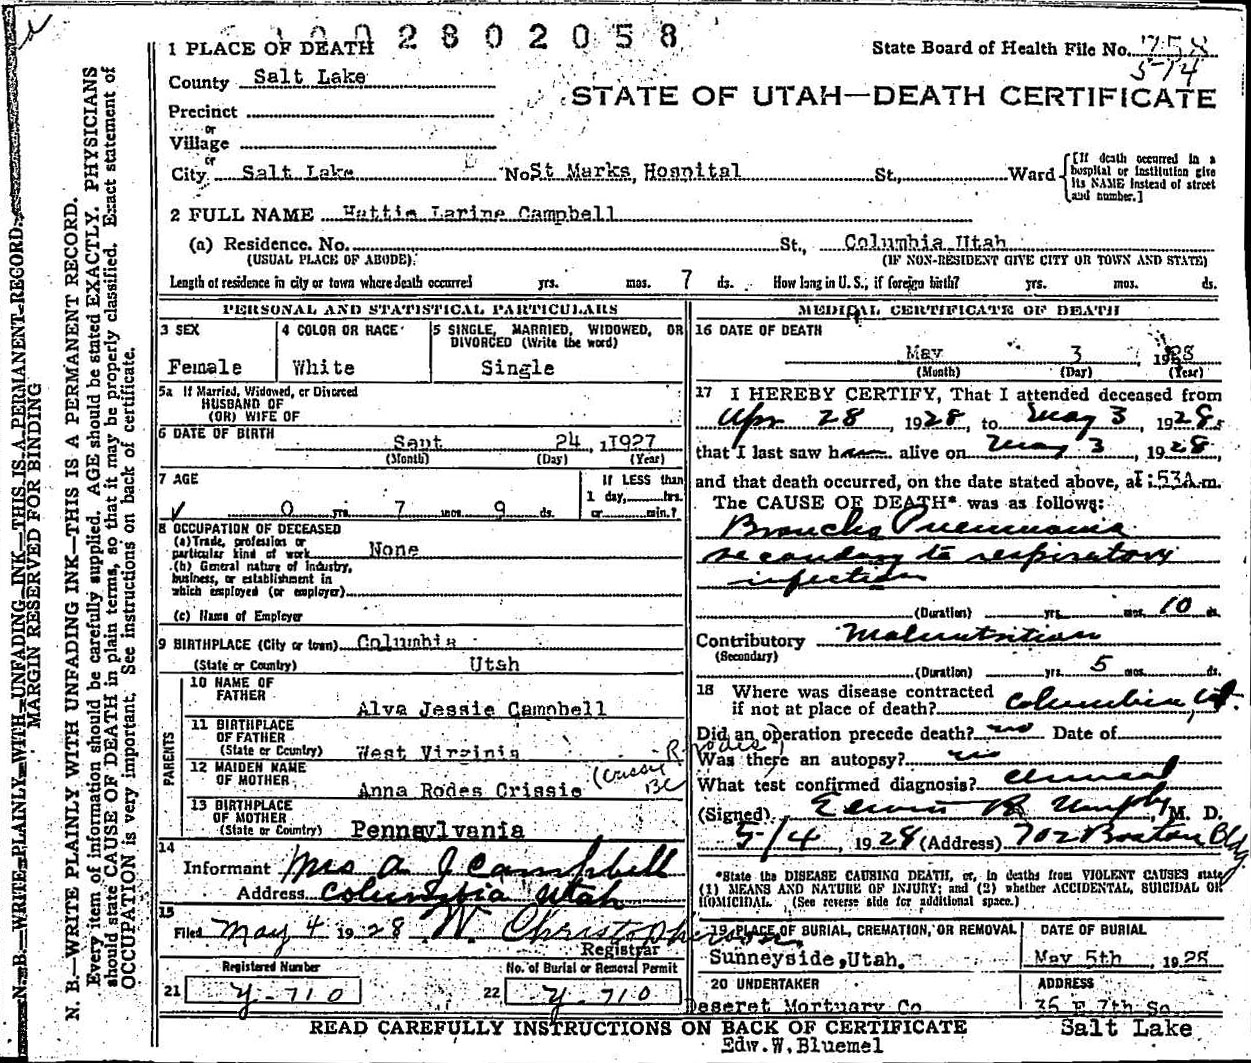 1002802058
1 PLACE OF DEATH
State Board of Health File No. 758
5-14
County Salt Lake
STATE OF UTAH—DEATH CERTIFICATE
Precinct
or
Village
or
City Salt Lake No St Marks Hospital St., Ward
[If death occurred in a hospital or institution give its NAME instead of street and number.]
2 FULL NAME Hattie Larine Campbell
(a) Residence. No. St., Columbia Utah
(USUAL PLACE OF ABODE) (IF NON-RESIDENT GIVE CITY OR TOWN AND STATE)
Length of residence in city or town where death occurred yrs. mos. 7 ds. How long in U. S., if foreign birth? yrs. mos. ds.
PERSONAL AND STATISTICAL PARTICULARS
3 SEX
Female
4 COLOR OR RACE
White
5 SINGLE, MARRIED, WIDOWED, OR DIVORCED (Write the word)
Single
5a If Married, Widowed, or Divorced
HUSBAND OF
(OR) WIFE OF
6 DATE OF BIRTH
Sept 24, 1927
(Month) (Day) (Year)
7 AGE
0 yrs. 7 mos 9 ds.
If LESS than
1 day, hrs.
or min.?
8 OCCUPATION OF DECEASED
(a) Trade, profession or
particular kind of work None
(b) General nature of industry,
business, or establishment in
which employed (or employer)
(c) Name of Employer
9 BIRTHPLACE (City or town) Columbia
(State or Country) Utah
PARENTS
10 NAME OF
FATHER
Alva Jessie Campbell
11 BIRTHPLACE
OF FATHER
(State or Country) West Virginia
12 MAIDEN NAME
OF MOTHER
Anna Rodes Crissie
(Crissy Rhodes)
BC
13 BIRTHPLACE
OF MOTHER
(State or Country) Pennsylvania
14
Informant Mrs A J Campbell
Address Columbia Utah
15
Filed May 4 1928 W. Christopherson
Registrar
Registered Number
21 Y-710
No. of Burial or Removal Permit
22 Y-710
MEDICAL CERTIFICATE OF DEATH
16 DATE OF DEATH
May 3, 1928
(Month) (Day) (Year)
17 I HEREBY CERTIFY, That I attended deceased from
Apr 28, 1928, to May 3, 1928,
that I last saw her alive on May 3, 1928,
and that death occurred, on the date stated above, at 1:53A.m.
The CAUSE OF DEATH* was as follows:
Broncho Pneumonia
secondary to respiratory
infection
(Duration) yrs. mos. 10 ds
Contributory Malnutrition
(Secondary)
(Duration) yrs. 5 mos. ds.
18 Where was disease contracted
if not at place of death? Columbia, Ut.
Did an operation precede death? no Date of
Was there an autopsy? no
What test confirmed diagnosis? clinical
(Signed) Edwin R. Murphy, M. D.
5/4, 1928 (Address) 702 Boston Bldg
*State the DISEASE CAUSING DEATH, or, in deaths from VIOLENT CAUSES state
(1) MEANS AND NATURE OF INJURY; and (2) whether ACCIDENTAL, SUICIDAL OR
HOMICIDAL. (See reverse side for additional space.)
19 PLACE OF BURIAL, CREMATION, OR REMOVAL
Sunneyside, Utah.
DATE OF BURIAL
May 5th, 1928
20 UNDERTAKER
Deseret Mortuary Co
ADDRESS
36 E 7th So.
Salt Lake
READ CAREFULLY INSTRUCTIONS ON BACK OF CERTIFICATE
Edw.W.Bluemel
N. B.—WRITE PLAINLY—WITH UNFADING INK—THIS IS A PERMANENT RECORD
MARGIN RESERVED FOR BINDING
N. B.—WRITE PLAINLY WITH UNFADING INK—THIS IS A PERMANENT RECORD.
Every item of information should be carefully supplied. AGE should be stated EXACTLY. PHYSICIANS
should state CAUSE OF DEATH in plain terms, so that it may be properly classified. Exact statement of
OCCUPATION is very important. See instructions on back of certificate.